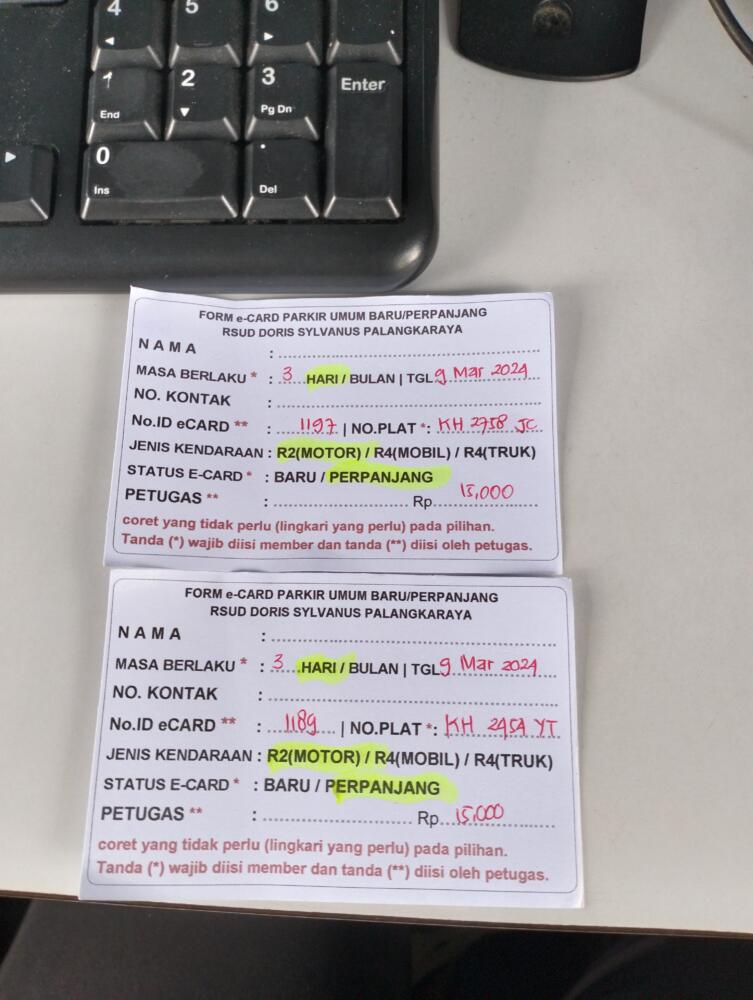 4 5 6
1 2 3 Enter
End Pg Dn
0 .
Ins Del
FORM e-CARD PARKIR UMUM BARU/PERPANJANG
RSUD DORIS SYLVANUS PALANGKARAYA
NAMA :
MASA BERLAKU * : 3 HARI / BULAN | TGL 9 Mar 2024
NO. KONTAK :
No.ID eCARD ** : 1197 | NO.PLAT *: KH 2758 JC
JENIS KENDARAAN : R2(MOTOR) / R4(MOBIL) / R4(TRUK)
STATUS E-CARD * : BARU / PERPANJANG
PETUGAS ** : Rp 15,000
coret yang tidak perlu (lingkari yang perlu) pada pilihan.
Tanda (*) wajib diisi member dan tanda (**) diisi oleh petugas.
FORM e-CARD PARKIR UMUM BARU/PERPANJANG
RSUD DORIS SYLVANUS PALANGKARAYA
NAMA :
MASA BERLAKU * : 3 HARI / BULAN | TGL 9 Mar 2024
NO. KONTAK :
No.ID eCARD ** : 1189 | NO.PLAT *: KH 2454 YT
JENIS KENDARAAN : R2(MOTOR) / R4(MOBIL) / R4(TRUK)
STATUS E-CARD * : BARU / PERPANJANG
PETUGAS ** : Rp 15,000
coret yang tidak perlu (lingkari yang perlu) pada pilihan.
Tanda (*) wajib diisi member dan tanda (**) diisi oleh petugas.